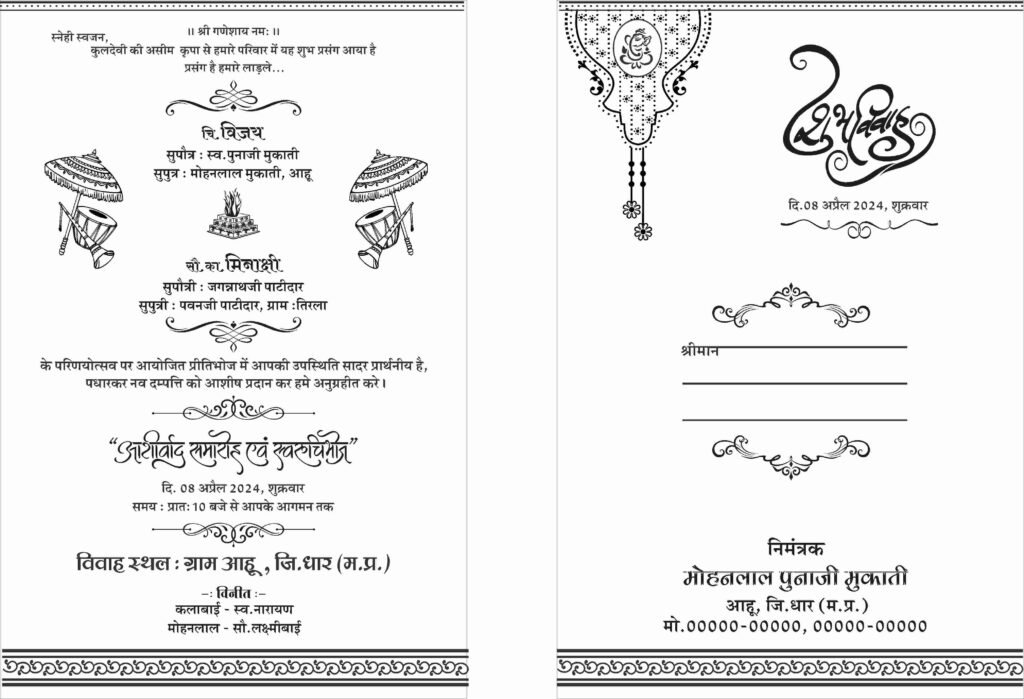 ॥ श्री गणेशाय नम: ॥
स्नेही स्वजन,
कुलदेवी की असीम कृपा से हमारे परिवार में यह शुभ प्रसंग आया है
प्रसंग है हमारे लाड़ले...
चि.विजय
सुपौत्र : स्व.पुनाजी मुकाती
सुपुत्र : मोहनलाल मुकाती, आहू
सौ.का.मिनाक्षी
सुपौत्री : जगन्नाथजी पाटीदार
सुपुत्री : पवनजी पाटीदार, ग्राम :तिरला
के परिणयोत्सव पर आयोजित प्रीतिभोज में आपकी उपस्थिति सादर प्रार्थनीय है,
पधारकर नव दम्पत्ति को आशीष प्रदान कर हमे अनुग्रहीत करे।
“आशीर्वाद समारोह एवं स्वरुचिभोज”
दि. 08 अप्रैल 2024, शुक्रवार
समय : प्रात: 10 बजे से आपके आगमन तक
विवाह स्थल : ग्राम आहू , जि.धार (म.प्र.)
-: विनीत :-
कलाबाई - स्व.नारायण
मोहनलाल - सौ.लक्ष्मीबाई
शुभविवाह
दि.08 अप्रैल 2024, शुक्रवार
श्रीमान
निमंत्रक
मोहनलाल पुनाजी मुकाती
आहू, जि.धार (म.प्र.)
मो.00000-00000, 00000-00000